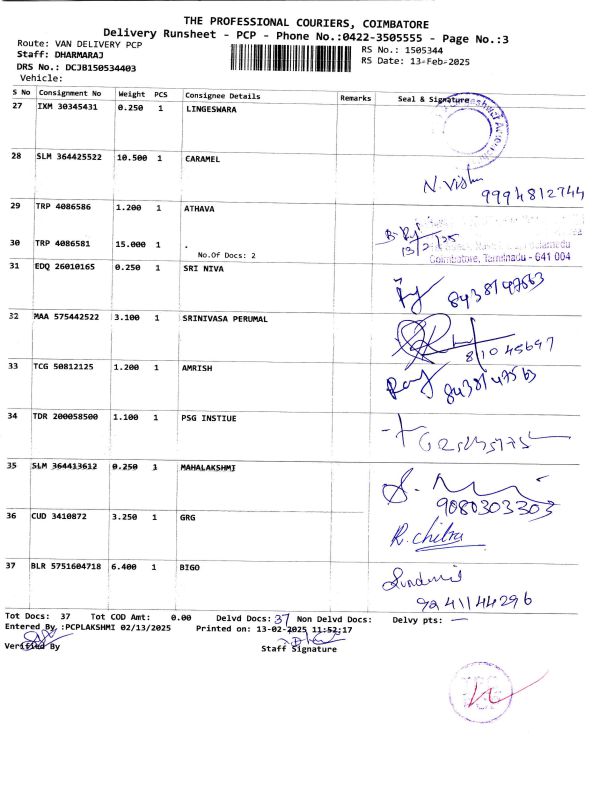 THE PROFESSIONAL COURIERS, COIMBATORE
Delivery Runsheet - PCP - Phone No.:0422-3505555 - Page No.:3
Route: VAN DELIVERY PCP
RS No.: 1505344
Staff: DHARMARAJ
RS Date: 13-Feb-2025
DRS No.: DCJB150534403
Vehicle:
S No Consignment No Weight PCS Consignee Details Remarks Seal & Signature
27 IXM 30345431 0.250 1 LINGESWARA
28 SLM 364425522 10.500 1 CARAMEL
N. Vishnu
9994812744
29 TRP 4086586 1.200 1 ATHAVA
13/2/25
30 TRP 4086581 15.000 1 .
No.Of Docs: 2
Coimbatore, Tamilnadu - 641 004
31 EDQ 26010165 0.250 1 SRI NIVA
8438147563
32 MAA 575442522 3.100 1 SRINIVASA PERUMAL
81045697
33 TCG 50812125 1.200 1 AMRISH
8438147563
34 TDR 200058500 1.100 1 PSG INSTIUE
35 SLM 364413612 0.250 1 MAHALAKSHMI
9080303303
36 CUD 3410872 3.250 1 GRG
R. Chitra
37 BLR 5751604718 6.400 1 BIGO
9241144296
Tot Docs: 37 Tot COD Amt: 0.00 Delvd Docs: 37 Non Delvd Docs: Delvy pts: —
Entered By :PCPLAKSHMI 02/13/2025 Printed on: 13-02-2025 11:52:17
Verified By
Staff Signature